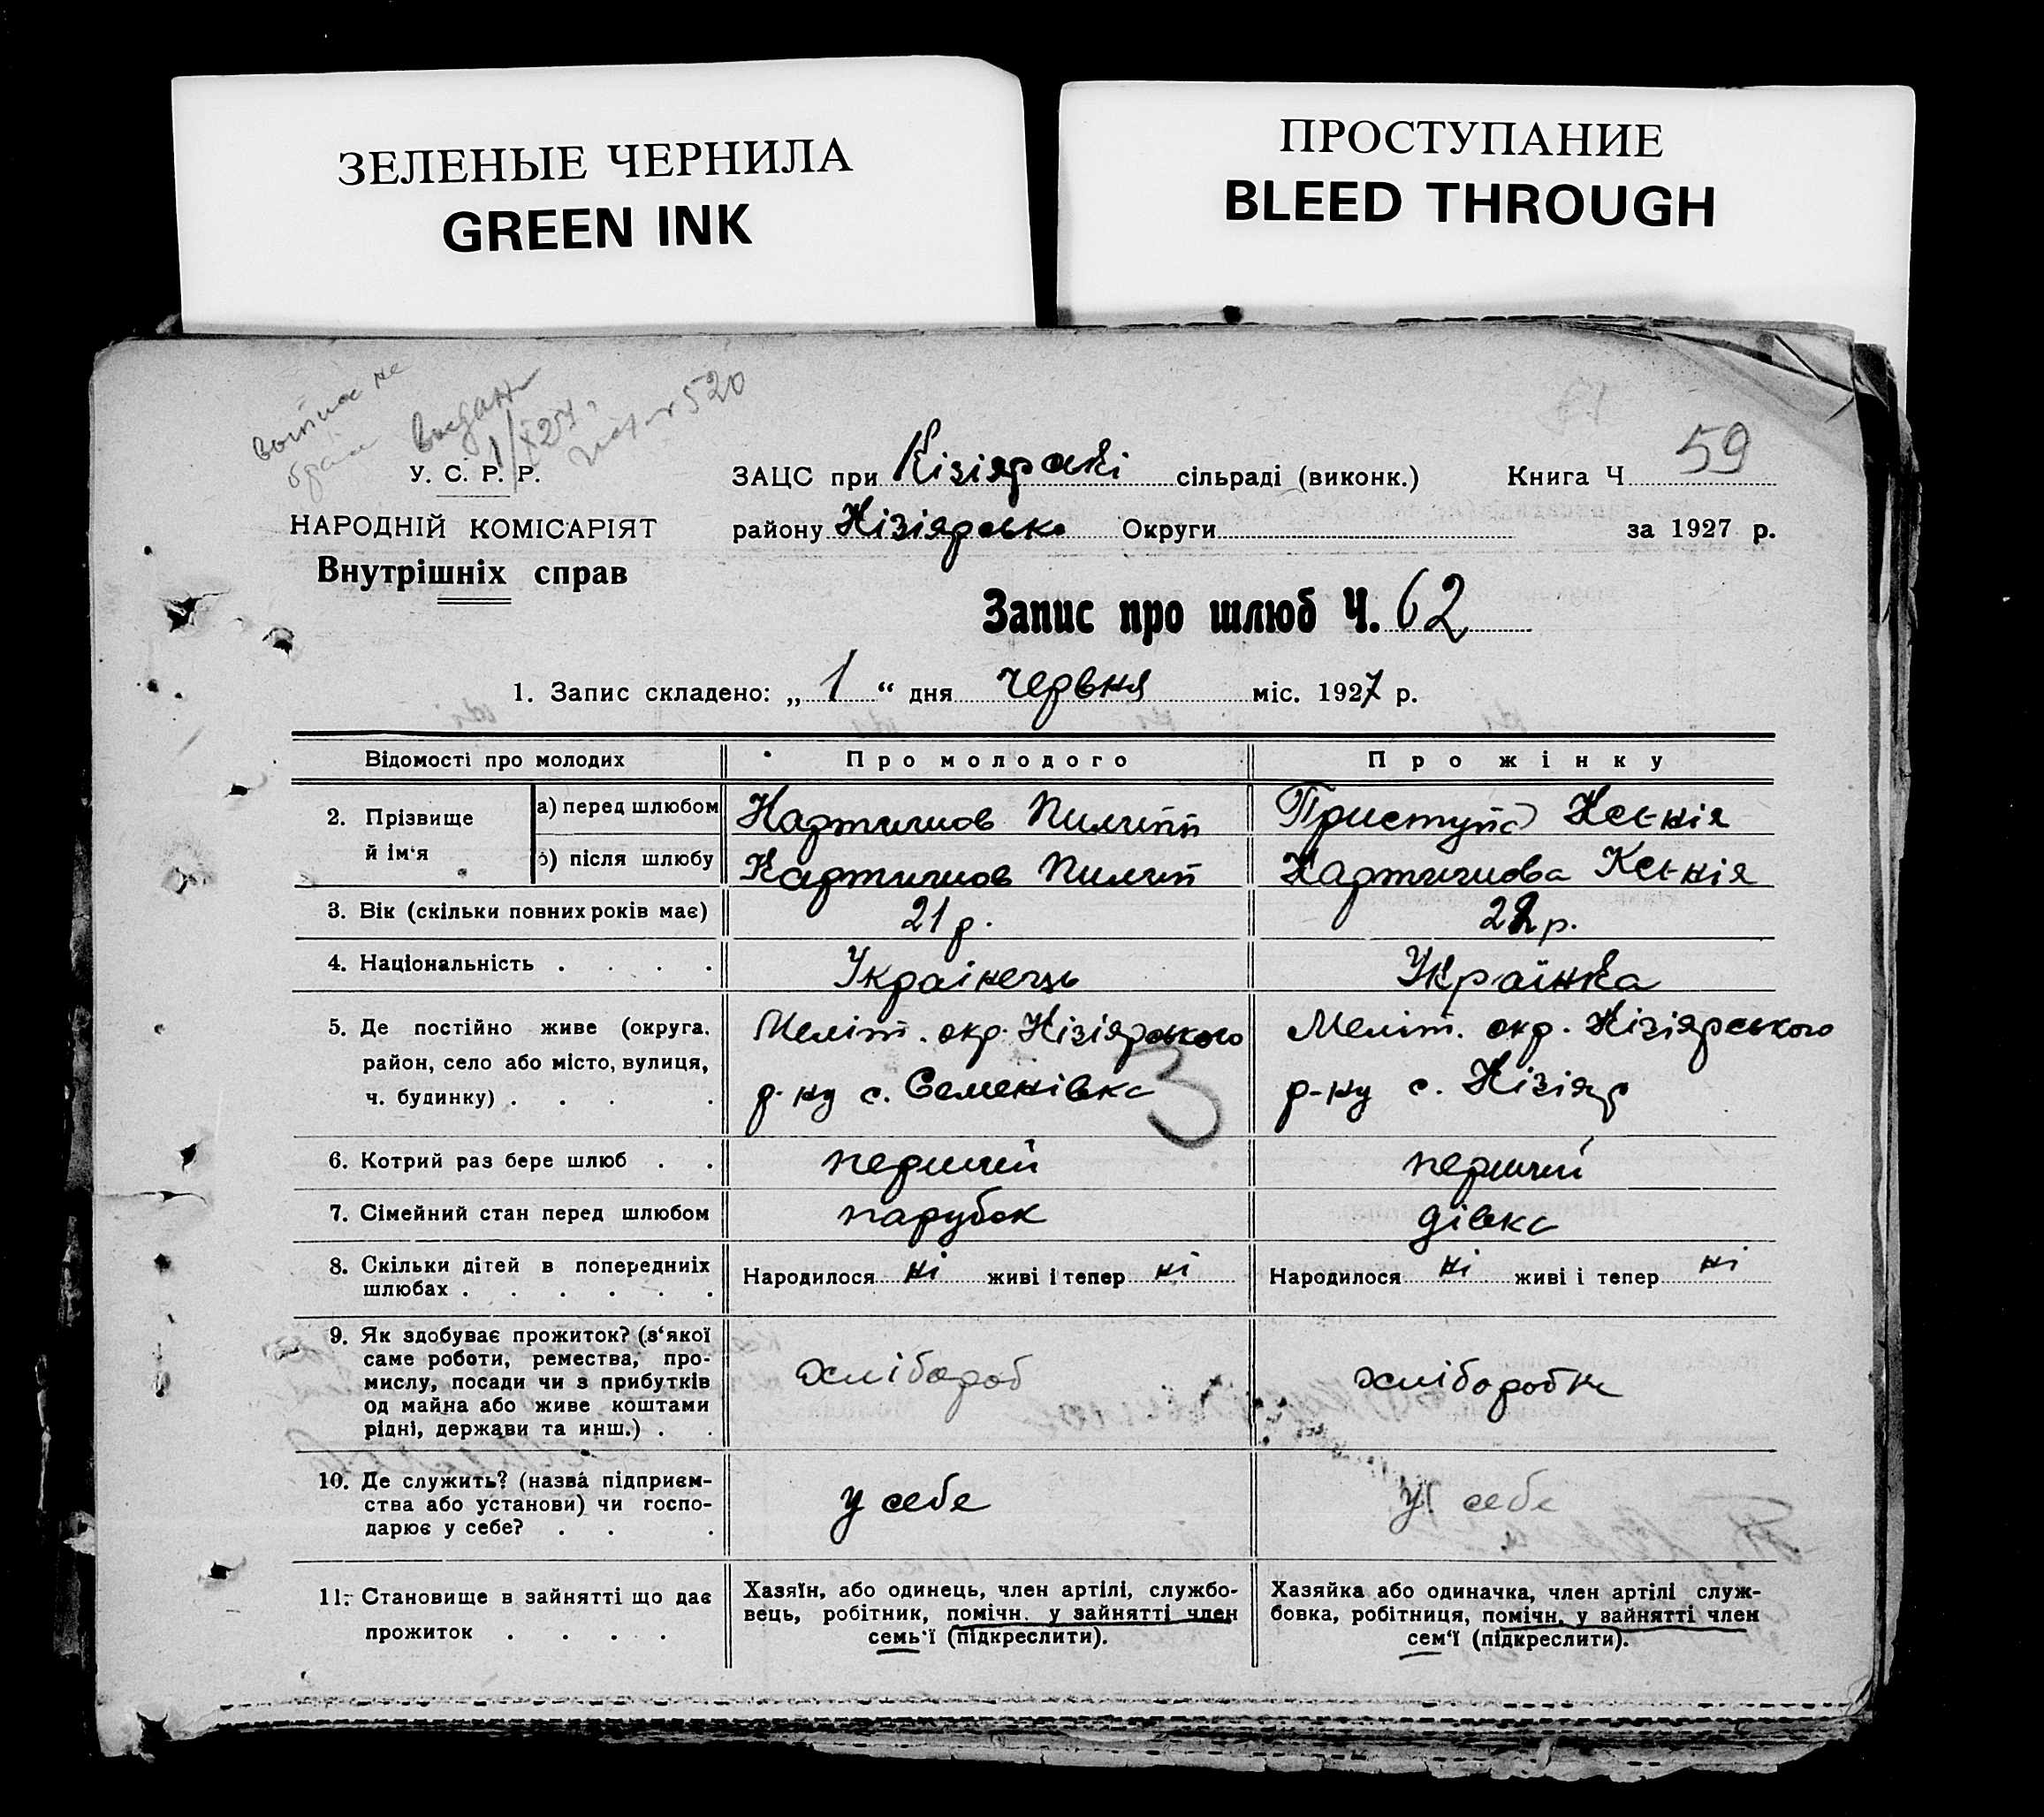 ЗЕЛЕНЫЕ ЧЕРНИЛА
GREEN INK
ПРОСТУПАНИЕ
BLEED THROUGH
У. С. Р. Р.
НАРОДНІЙ КОМІСАРІЯТ
Внутрішніх справ
ЗАЦС при Кізіярскі сільраді (виконк.) Книга Ч 59
району Кізіярсько Округи за 1927 р.
Запис про шлюб Ч. 62
1. Запис складено: „ 1 “ дня червня міс. 1927 р.
Відомості про молодих Про молодого Про жінку
2. Прізвище й ім'я
а) перед шлюбом Картишов Пилип Приступа Ксенія
б) після шлюбу Картишов Пилип Картишова Ксенія
3. Вік (скільки повних років має) 21 р. 22 р.
4. Національність . . . . Українець Українка
5. Де постійно живе (округа,
район, село або місто, вулиця,
ч. будинку) . . . .
Меліт. окр. Кізіярського
р-ну с. Семенівка
3
Меліт. окр. Кізіярського
р-ну с. Кізіяр
6. Котрий раз бере шлюб . . перший перший
7. Сімейний стан перед шлюбом парубок дівка
8. Скільки дітей в попередниіх
шлюбах . . . . . .
Народилося ні живі і тепер ні
Народилося ні живі і тепер ні
9. Як здобуває прожиток? (з'якої
саме роботи, ремества, про-
мислу, посади чи з прибутків
од майна або живе коштами
рідні, держави та инш.) . .
хлібороб хліборобка
10. Де служить? (назва підприєм-
ства або установи) чи госпо-
дарює у себе? . . .
у себе у себе
11. Становище в зайнятті що дає
прожиток . . . .
Хазяїн, або одинець, член артілі, службо-
вець, робітник, помічн. у зайнятті член
семь'ї (підкреслити).
Хазяйка або одиначка, член артілі служ-
бовка, робітниця, помічн. у зайнятті член
сем'ї (підкреслити).